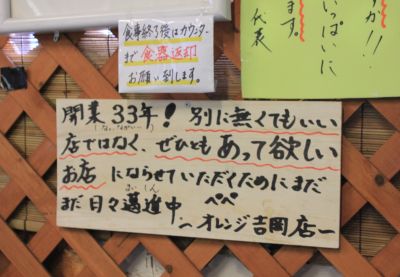 食事終了後はカウンター
まで食器返却
お願い致します。
すか!!
いっぱいに
ます。
代表
開業33年! 別に無くてもいい
店ではなく、ぜひともあって欲しい
お店にならせていただくためにまだ
まだ日々邁進中 ペペ
〜オレンジ吉岡店〜